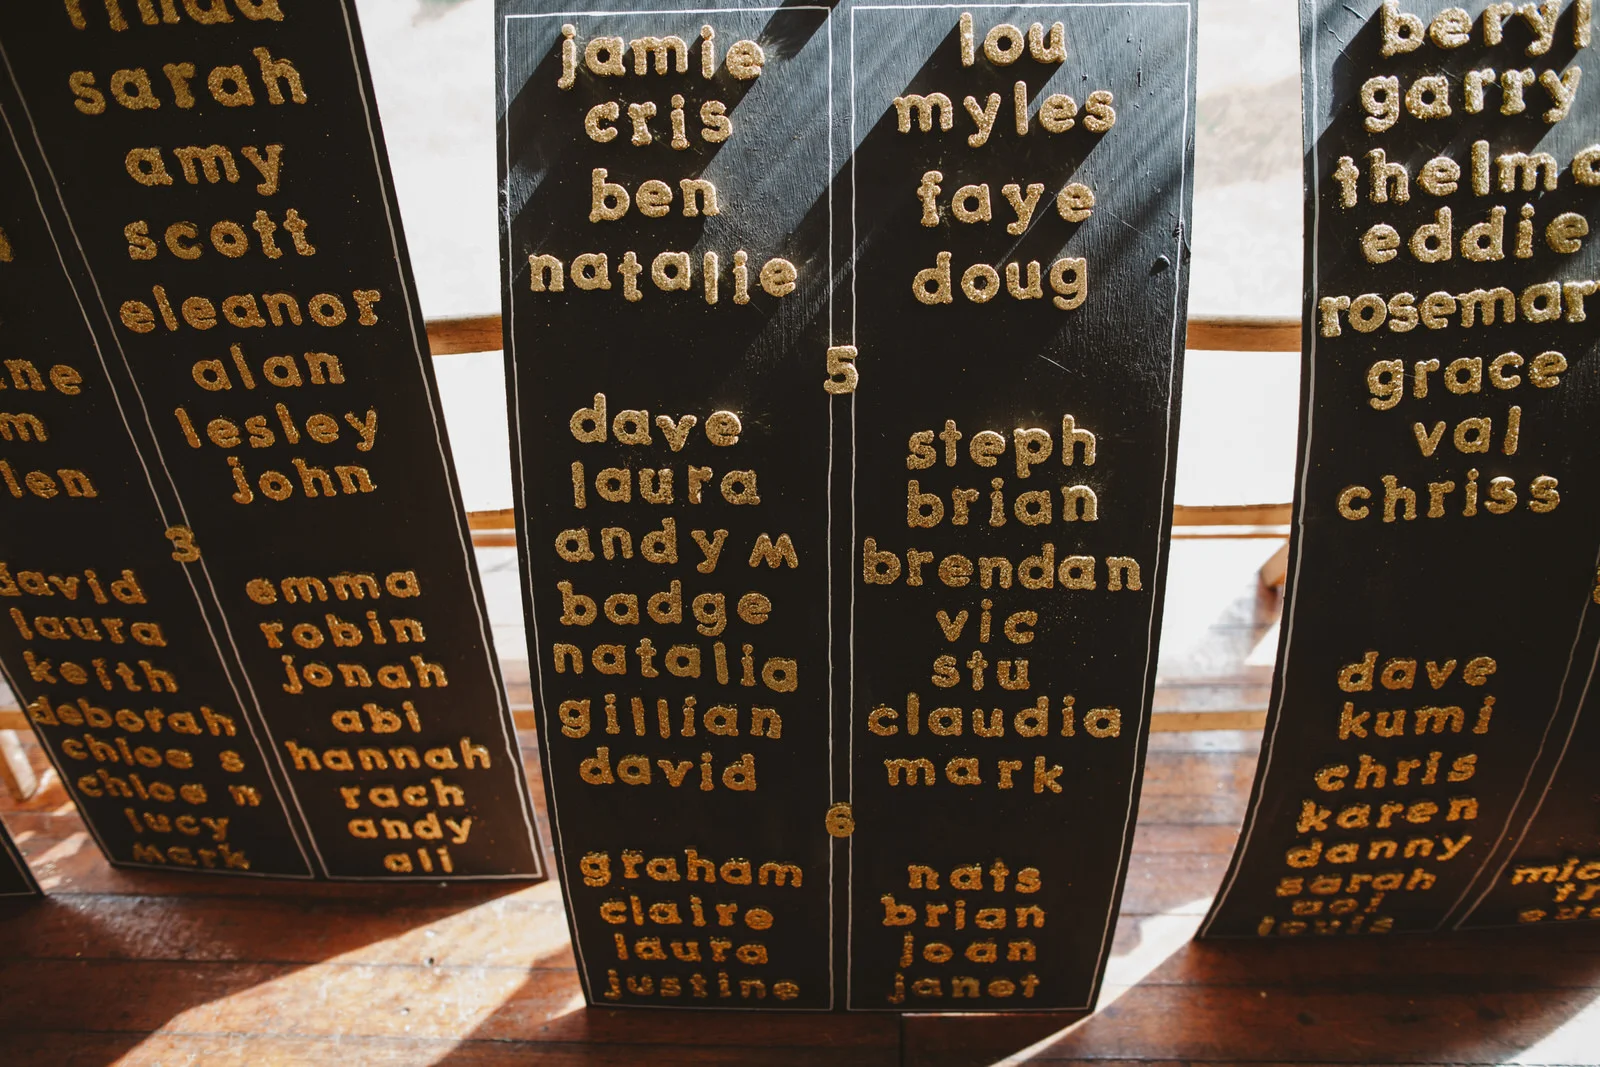 sarah
amy
scott
eleanor
alan
lesley
john
3
david
laura
keith
deborah
chloe s
chloe n
lucy
mark
emma
robin
jonah
abi
hannah
rach
andy
ali
jamie
cris
ben
natalie
lou
myles
faye
doug
5
dave
laura
andy m
badge
natalia
gillian
david
steph
brian
brendan
vic
stu
claudia
mark
6
graham
claire
laura
justine
nats
brian
joan
janet
beryl
garry
thelma
eddie
rosemar
grace
val
chriss
dave
kumi
chris
karen
danny
sarah
louis